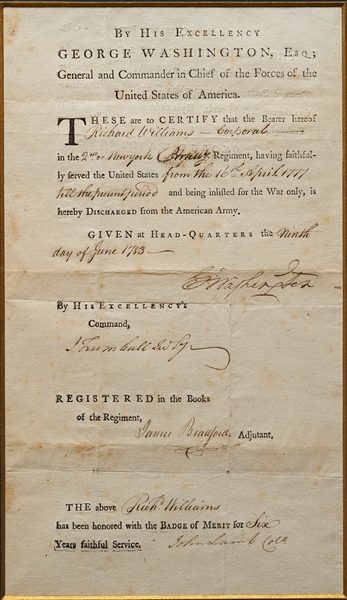 By His Excellency
GEORGE WASHINGTON, Esq;
General and Commander in Chief of the Forces of the
United States of America.
THESE are to CERTIFY that the Bearer hereof
Richard Williams — Corporal
in the 2nd Newyork Regiment, having faithful-
ly served the United States from the 16th April 1777
till the present period and being inlisted for the War only, is
hereby Discharged from the American Army.
GIVEN at Head-Quarters the Ninth
day of June 1783 —
GWashington
By His Excellency's
Command,
J Trumbull Jun Sy
REGISTERED in the Books
of the Regiment,
James Bradford, Adjutant.
THE above Richd Williams
has been honored with the Badge of Merit for Six
Years faithful Service. John Lamb Coll